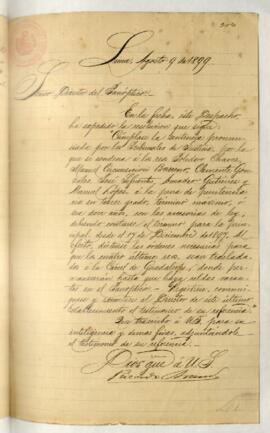 Lima, Agosto 9 de 1899.
Señor Director del Panóptico.
En la fecha, este Despacho
ha expedido la resolución que sigue:
"Cúmplase la sentencia pronun-
ciada por los Tribunales de Justicia, por la
que se condena á la rea Soledad Chavez,
Manuel Barreno, Clemente Gon-
zales, José Amador Gutierrez y
Manuel López, á la pena de penitencia-
ria en tercer grado, término máximo, ó
sea doce años, con las accesorias de ley,
debiendo contarse el término para la prin-
cipal desde el 17 de Diciembre de 1897. Al
efecto, díctese las órdenes necesarias para
que los cuatro últimos sean traslada-
dos á la Carcel de Guadalupe, donde per-
manecerán hasta que haya celdas vacan-
tes en el Panóptico. — Regístrese, comuni-
quese y remítase al Director de este último
Establecimiento el testimonio de su referencia."
Que trascribo á US. para su
inteligencia y demas fines, adjuntándole
el testimonio de su referencia.
Dios gue. á US.